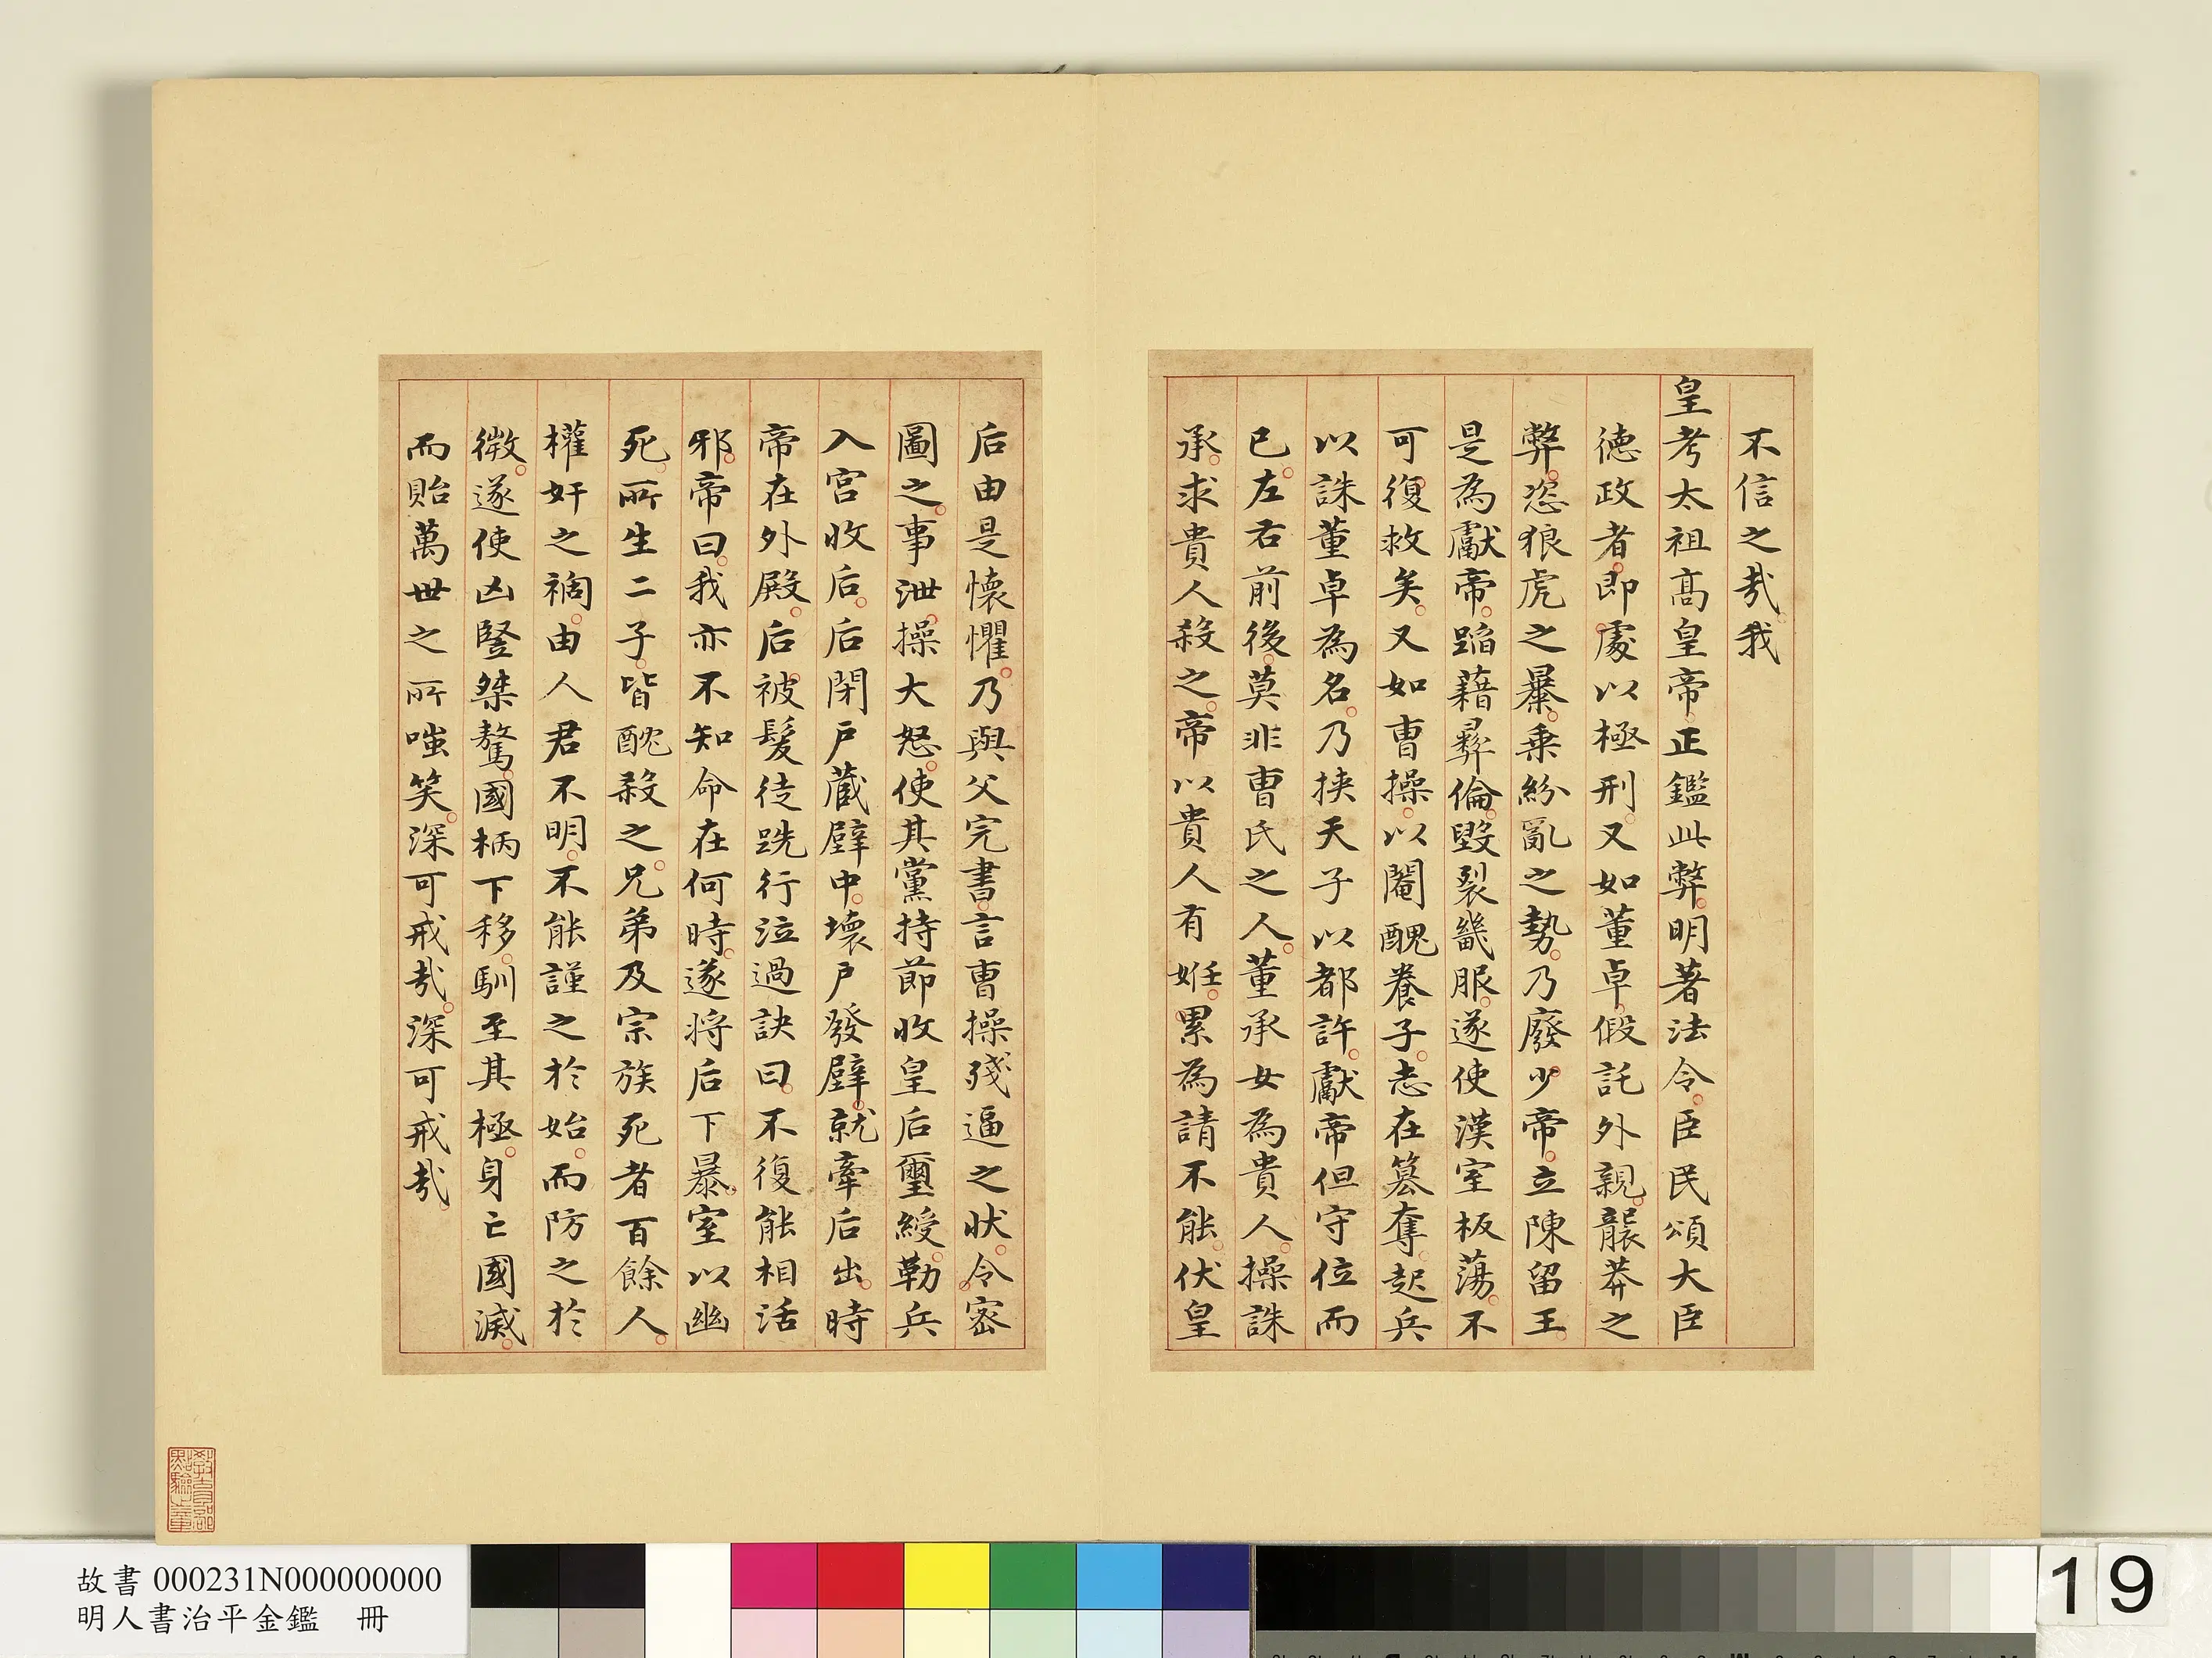 不信之㢤我
皇考太祖高皇帝正鑑此弊明著法令臣民頌大臣
德政者即處以極刑又如董卓假託外親襲莽之
弊恣狼虎之暴乗紛亂之勢乃廢少帝立陳留王
是為獻帝蹈藉彝倫毀裂畿服遂使漢室板蕩不
可復救矣又如曹操以閹醜養子志在簒奪起兵
以誅董卓為名乃挟天子以都許獻帝但守位而
已左右前後莫非曹氏之人董承女為貴人操誅
承求貴人殺之帝以貴人有姙累為請不能伏皇
后由是懷懼乃與父完書言曹操殘逼之狀令密
圖之事泄操大怒使其黨持節收皇后璽綬勒兵
入宮收后后閉戶蔵壁中壞戶發壁就牽后出時
帝在外殿后被髮徒跣行泣過訣曰不復能相活
邪帝曰我亦不知命在何時遂将后下暴室以幽
死所生二子皆酖殺之兄弟及宗族死者百餘人
權奸之禍由人君不明不能謹之於始而防之於
微遂使凶豎桀驁國柄下移馴至其極身亡國滅
而貽萬世之所嗤笑深可戒㢤深可戒㢤
故書 000231N000000000
明人書治平金鑑 冊
19